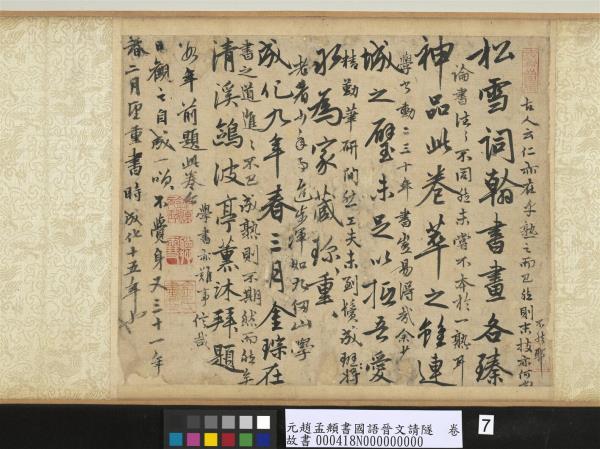 古人云仁亦在乎熟之而已然則末技亦何
松雪詞翰書畫各臻
論書法之不同然未嘗不本於熟耳
神品此卷萃之雖連
學書動二三十年書豈易得哉余少
城之璧未足以抵吾愛
精勤華研然工夫未到鬢成班將
永為家藏珍重
老者少年進步渾如九仞山學
成化九年春三月金琮在
書之道進之不已成熟則不期然而能矣
清溪鷁波亭薰沐拜題
學書亦難事信哉
年前題此卷今
日觀之自成一哂不覺身又三十一年
春二月望重書時成化十五年也
元趙孟頫書國語晉文請隧 卷
故書 000418N000000000
7